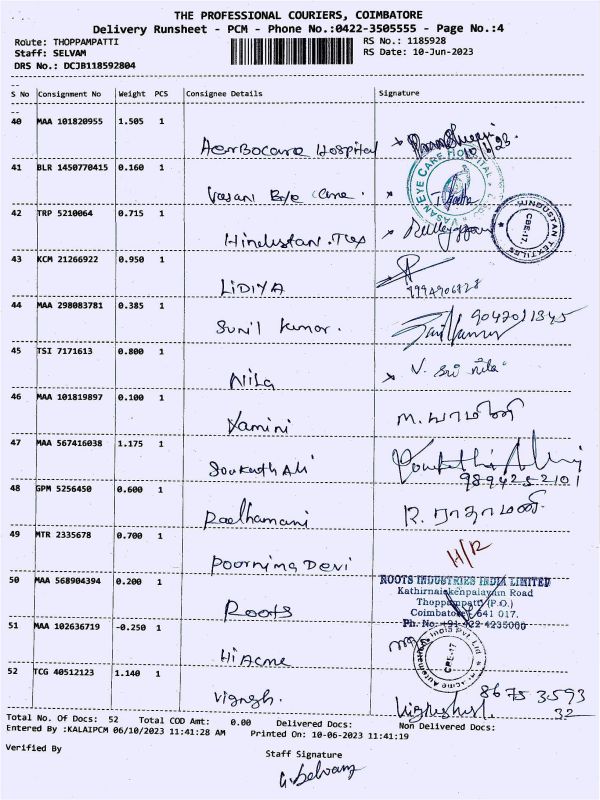 THE PROFESSIONAL COURIERS, COIMBATORE
Delivery Runsheet - PCM - Phone No.:0422-3505555 - Page No.:4
Route: THOPPAMPATTI RS No.: 1185928
Staff: SELVAM RS Date: 10-Jun-2023
DRS No.: DCJB118592804
S No Consignment No Weight PCS Consignee Details Signature
40 MAA 101820955 1.505 1
Aerbocare Hospital
41 BLR 1450770415 0.160 1
Vasan Eye Care.
VASAN EYE CARE HOSPITAL
42 TRP 5210064 0.715 1
Hindustan.Tex
HINDUSTAN TEXTILES
CBE-17.
43 KCM 21266922 0.950 1
LIDIYA
9994906828
44 MAA 298083781 0.385 1
Sunil Kumar.
9042011345
45 TSI 7171613 0.800 1
Nila V. Sri Nila
46 MAA 101819897 0.100 1
Yamini ம.யாமினி
47 MAA 567416038 1.175 1
Soukath Ali
9894252101
48 GPM 5256450 0.600 1
Radhamani R. ராதாமணி.
49 MTR 2335678 0.700 1
Poornima Devi H/R
50 MAA 568904394 0.200 1
Roots
ROOTS INDUSTRIES INDIA LIMITED
Kathirnaickenpalayam Road
Thoppampatti (P.O.)
Coimbatore - 641 017.
Ph. No: +91 422 4235000
51 MAA 102636719 -0.250 1
Hi Acme
CBE-17
52 TCG 40512123 1.140 1
Vignesh.
8675 3593
32
Total No. Of Docs: 52 Total COD Amt: 0.00 Delivered Docs: Non Delivered Docs:
Entered By :KALAIPCM 06/10/2023 11:41:28 AM Printed On: 10-06-2023 11:41:19
Verified By Staff Signature
G. Selvam